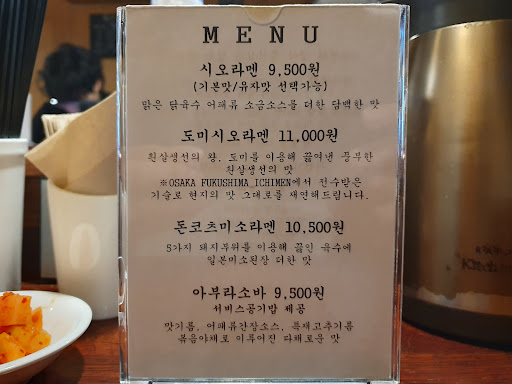 MENU
시오라멘 9,500원
(기본맛/유자맛 선택가능)
맑은 닭육수 어패류 소금소스를 더한 담백한 맛
도미시오라멘 11,000원
흰살생선의 왕, 도미를 이용해 끓여낸 풍부한
흰살생선의 맛
※OSAKA FUKUSHIMA ICHIMEN에서 전수받은
기술로 현지의 맛 그대로를 재연해드립니다.
돈코츠미소라멘 10,500원
5가지 돼지부위를 이용해 끓인 육수에
일본미소된장 더한 맛
아부라소바 9,500원
서비스공기밥 제공
맛기름, 어패류간장소스, 특제고추기름
볶음야채로 이루어진 다채로운 맛